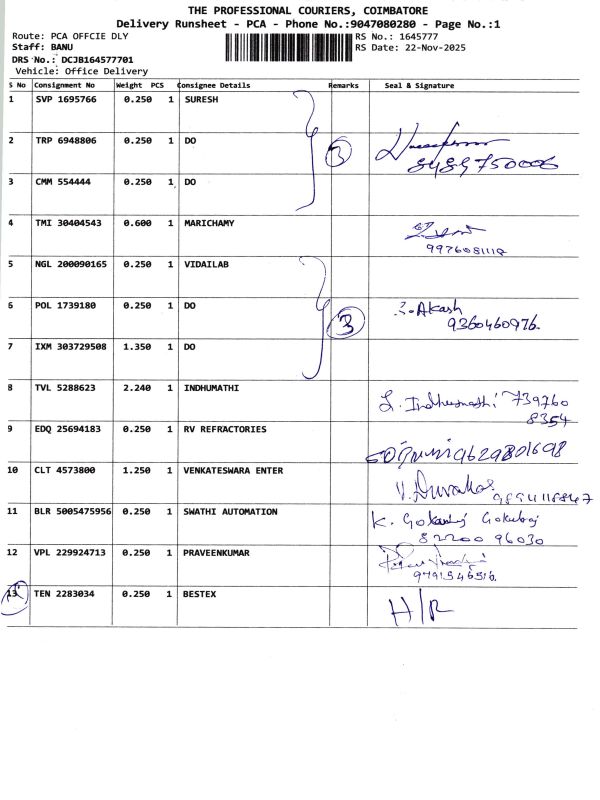 THE PROFESSIONAL COURIERS, COIMBATORE
Delivery Runsheet - PCA - Phone No.:9047080280 - Page No.:1
Route: PCA OFFCIE DLY
RS No.: 1645777
Staff: BANU
RS Date: 22-Nov-2025
DRS No.: DCJB164577701
Vehicle: Office Delivery
S No Consignment No Weight PCS Consignee Details Remarks Seal & Signature
1 SVP 1695766 0.250 1 SURESH
2 TRP 6948806 0.250 1 DO 3
8489750006
3 CMM 554444 0.250 1 DO
4 TMI 30404543 0.600 1 MARICHAMY
9976081118
5 NGL 200090165 0.250 1 VIDAILAB
6 POL 1739180 0.250 1 DO 3 Akash
9360460976.
7 IXM 303729508 1.350 1 DO
8 TVL 5288623 2.240 1 INDHUMATHI L. Indhumathi 739760
8354
9 EDQ 25694183 0.250 1 RV REFRACTORIES
9629801698
10 CLT 4573800 1.250 1 VENKATESWARA ENTER
11 BLR 5005475956 0.250 1 SWATHI AUTOMATION K. Gokulraj Gokulraj
82200 96030
12 VPL 229924713 0.250 1 PRAVEENKUMAR
9791546516.
13 TEN 2283034 0.250 1 BESTEX H/R